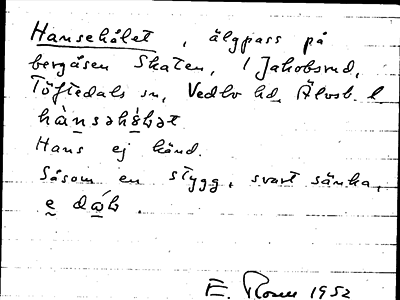 Hansehålet, älgpass på
bergåsen Skaten, i Jakobsrud,
Töftedals sn, Vedbo hd, Älvsb. l
Hans ej känd.
Såsom en stygg, svart sänka,
E. Rosen 1952